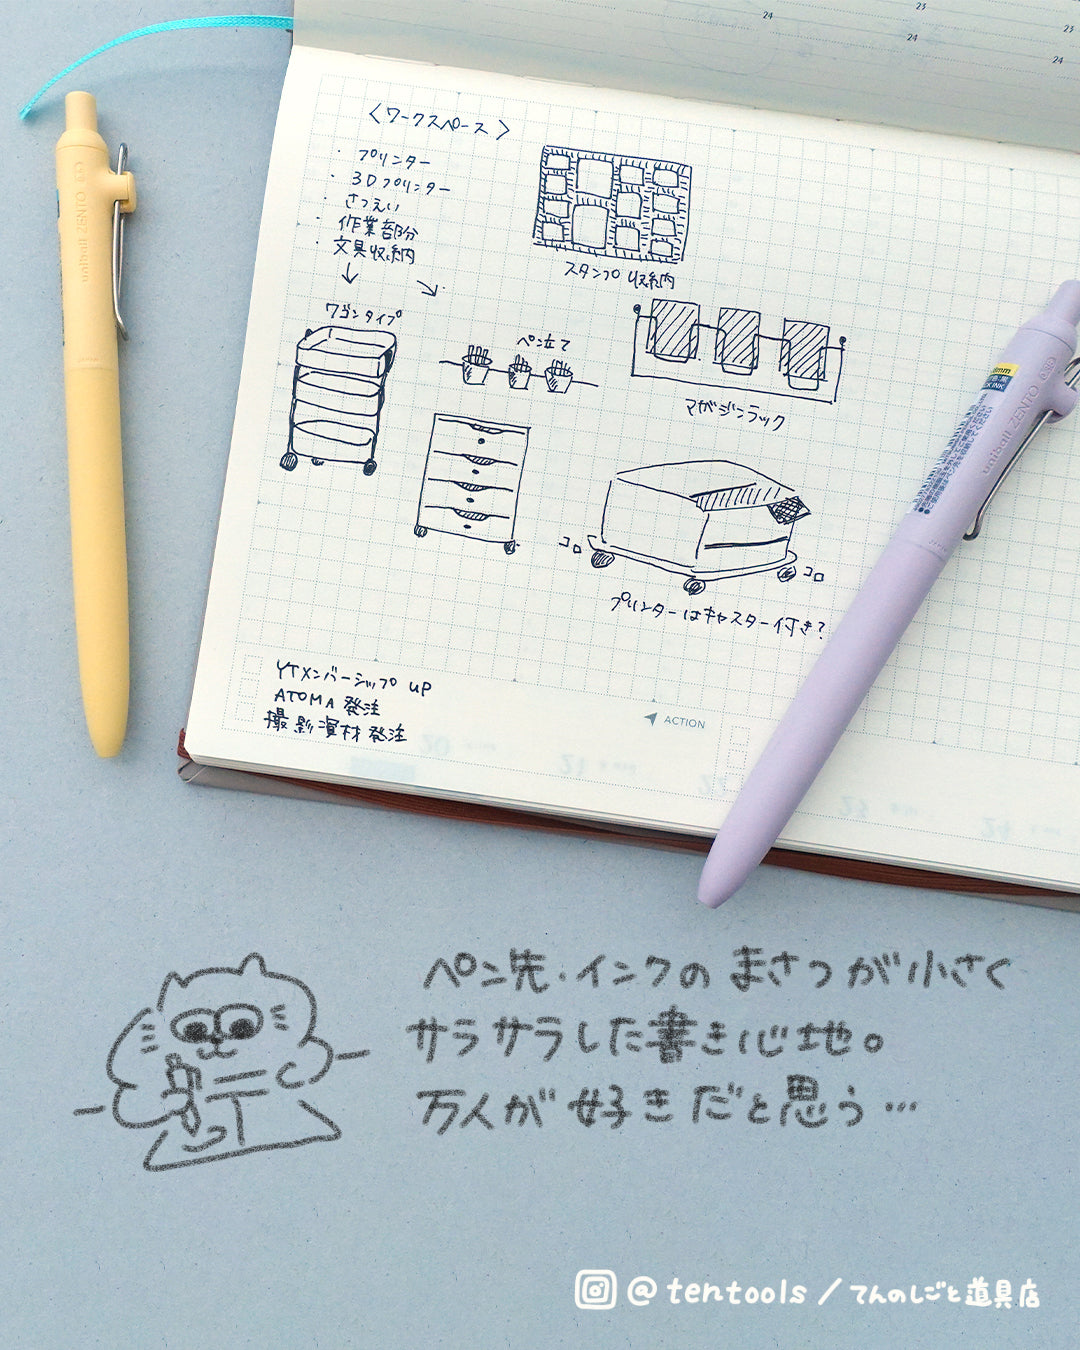 23
24
23
24
24
〈ワークスペース〉
・プリンター
・3Dプリンター
・さつえい
・作業部分
・文具収納
スタンプ収納
ワゴンタイプ
ペン立て
マガジンラック
コロ
コロ
プリンターはキャスター付き?
YTメンバーシップ UP
ATOMA 発注
撮影資材発注
ACTION
uniball ZENTO
uniball ZENTO
ペン先・インクのまさつが小さく
サラサラした書き心地。
万人が好きだと思う…
@tentools / てんのしごと道具店